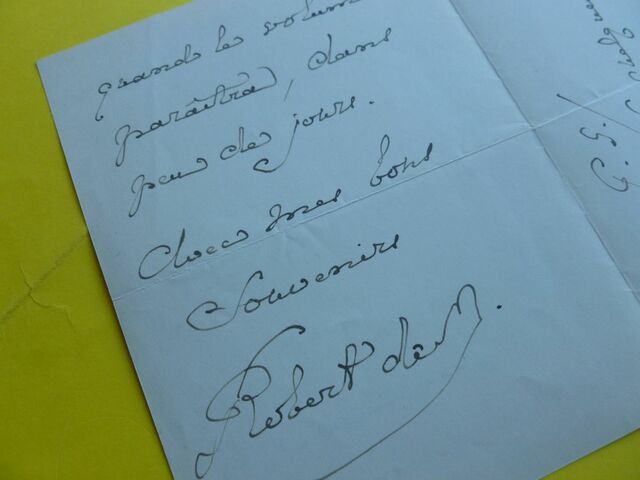 quand le volum
paraîtra, dans
peu de jours.
Avec mes bons
Souvenirs
Robert de